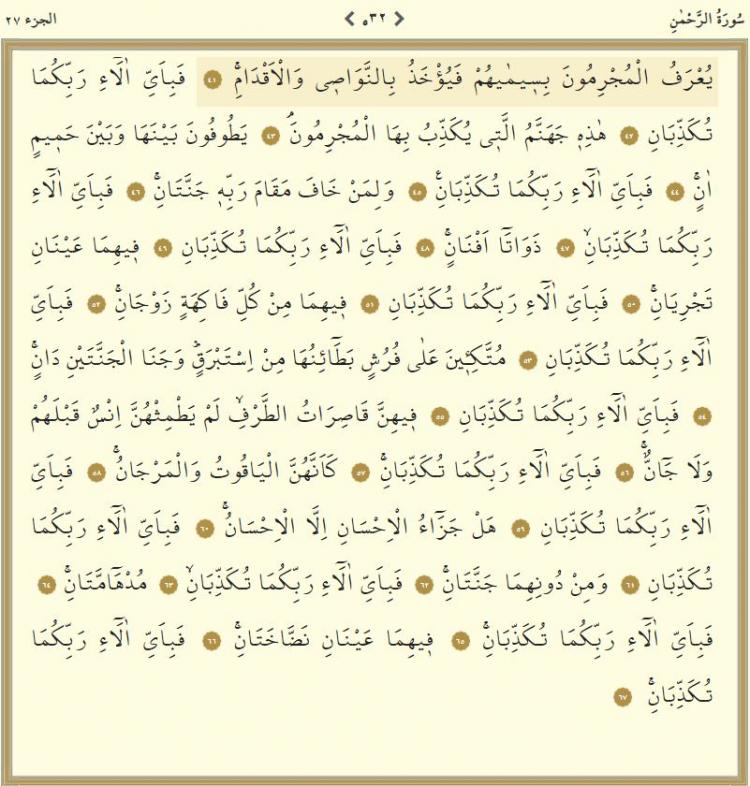 سُورَةُ الرَّحْمٰنِ ❮ ٥٣٢ ❯ الجزء ٢٧
يُعْرَفُ الْمُجْرِمُونَ بِسٖيمٰيهُمْ فَيُؤْخَذُ بِالنَّوَاصٖى وَالْاَقْدَامِۚ ٤١ فَبِاَىِّ اٰلَٓاءِ رَبِّكُمَا
تُكَذِّبَانِ ٤٢ هٰذِهٖ جَهَنَّمُ الَّتٖى يُكَذِّبُ بِهَا الْمُجْرِمُونَۘ ٤٣ يَطُوفُونَ بَيْنَهَا وَبَيْنَ حَمٖيمٍ
اٰنٍۚ ٤٤ فَبِاَىِّ اٰلَٓاءِ رَبِّكُمَا تُكَذِّبَانِ۟ ٤٥ وَلِمَنْ خَافَ مَقَامَ رَبِّهٖ جَنَّتَانِۚ ٤٦ فَبِاَىِّ اٰلَٓاءِ
رَبِّكُمَا تُكَذِّبَانِۙ ٤٧ ذَوَاتَٓا اَفْنَانٍۚ ٤٨ فَبِاَىِّ اٰلَٓاءِ رَبِّكُمَا تُكَذِّبَانِ ٤٩ فٖيهِمَا عَيْنَانِ
تَجْرِيَانِۚ ٥٠ فَبِاَىِّ اٰلَٓاءِ رَبِّكُمَا تُكَذِّبَانِ ٥١ فٖيهِمَا مِنْ كُلِّ فَاكِهَةٍ زَوْجَانِۚ ٥٢ فَبِاَىِّ
اٰلَٓاءِ رَبِّكُمَا تُكَذِّبَانِ ٥٣ مُتَّكِـٖٔينَ عَلٰى فُرُشٍ بَطَٓائِنُهَا مِنْ اِسْتَبْرَقٍؕ وَجَنَا الْجَنَّتَيْنِ دَانٍۚ
٥٤ فَبِاَىِّ اٰلَٓاءِ رَبِّكُمَا تُكَذِّبَانِ ٥٥ فٖيهِنَّ قَاصِرَاتُ الطَّرْفِۙ لَمْ يَطْمِثْهُنَّ اِنْسٌ قَبْلَهُمْ
وَلَا جَٓانٌّۚ ٥٦ فَبِاَىِّ اٰلَٓاءِ رَبِّكُمَا تُكَذِّبَانِۚ ٥٧ كَاَنَّهُنَّ الْيَاقُوتُ وَالْمَرْجَانُۚ ٥٨ فَبِاَىِّ
اٰلَٓاءِ رَبِّكُمَا تُكَذِّبَانِ ٥٩ هَلْ جَزَٓاءُ الْاِحْسَانِ اِلَّا الْاِحْسَانُۚ ٦٠ فَبِاَىِّ اٰلَٓاءِ رَبِّكُمَا
تُكَذِّبَانِ ٦١ وَمِنْ دُونِهِمَا جَنَّتَانِۚ ٦٢ فَبِاَىِّ اٰلَٓاءِ رَبِّكُمَا تُكَذِّبَانِۙ ٦٣ مُدْهَٓامَّتَانِۚ ٦٤
فَبِاَىِّ اٰلَٓاءِ رَبِّكُمَا تُكَذِّبَانِۚ ٦٥ فٖيهِمَا عَيْنَانِ نَضَّاخَتَانِۚ ٦٦ فَبِاَىِّ اٰلَٓاءِ رَبِّكُمَا
تُكَذِّبَانِۚ ٦٧